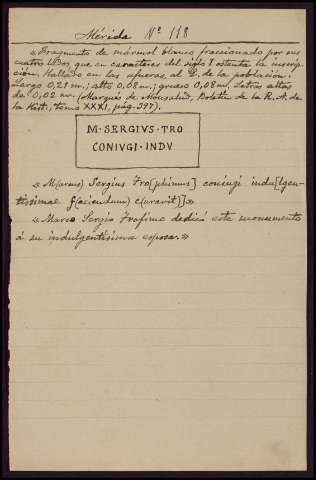 Mérida Nº 118
«Fragmento de mármol blanco fraccionado por sus
cuatro lados, que en caracteres del siglo I ostenta la inscrip-
ción. Hallado en las afueras al P. de la población.
Largo 0,21 m.; alto 0,08 m.; grueso 0,08 m. Letras altas
de 0,02 m. (Marqués de Monsalud, Boletín de la R. A. de
la Hist., tomo XXXI, pág. 397).
M · SERGIVS · TRO
CONIVGI · INDV
«M(arcus) Sergius Tro[phimus] coniugi indu[lgen-
tissimae f(aciendum) c(uravit)]»
«Marco Sergio Trofimo dedicó este monumento
á su indulgentísima esposa.»